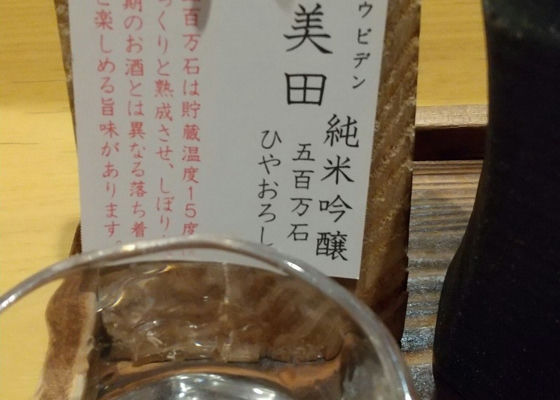 ウビデン
美田
純米吟醸
五百万石
ひやおろし
五百万石は貯蔵温度15度
っくりと熟成させ、しぼり
期のお酒とは異なる落ち着
と楽しめる旨味があります。